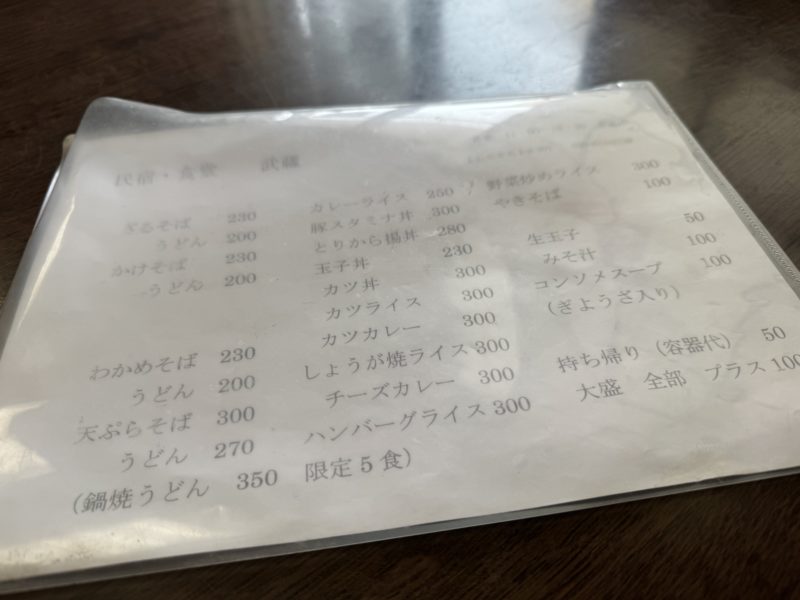 民宿・食堂 武蔵
ざるそば 230
うどん 200
かけそば 230
うどん 200
わかめそば 230
うどん 200
天ぷらそば 300
うどん 270
(鍋焼うどん 350 限定5食)
カレーライス 250
豚スタミナ丼 300
とりから揚丼 280
玉子丼 230
カツ丼 300
カツライス 300
カツカレー 300
しょうが焼ライス 300
チーズカレー 300
ハンバーグライス 300
野菜炒めライス 300
やきそば 100
生玉子 50
みそ汁 100
コンソメスープ 100
(ぎようざ入り)
持ち帰り (容器代) 50
大盛 全部 プラス 100